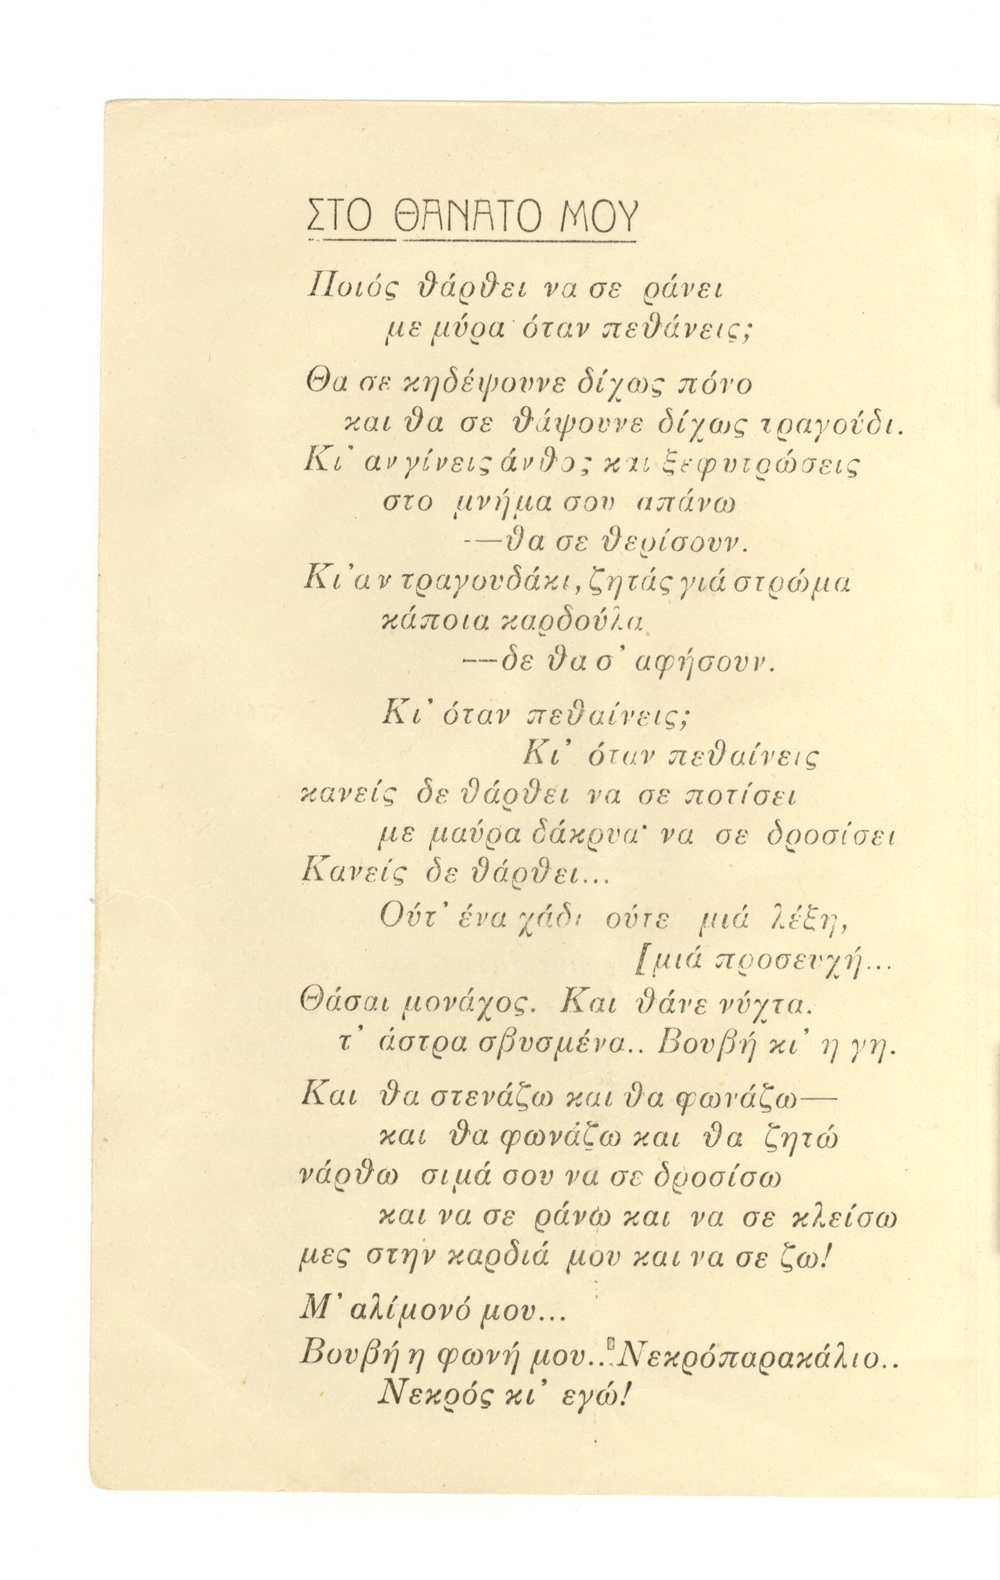 ΣΤΟ ΘΑΝΑΤΟ ΜΟΥ
Ποιός θάρθει να σε ράνει
με μύρα όταν πεθάνεις;
Θα σε κηδέψουνε δίχως πόνο
και θα σε θάψουνε δίχως τραγούδι.
Κι' αν γίνεις άνθος και ξεφυτρώσεις
στο μνήμα σου απάνω
—θα σε θερίσουν.
Κι' αν τραγουδάκι, ζητάς γιά στρώμα
κάποια καρδούλα
—δε θα σ' αφήσουν.
Κι' όταν πεθαίνεις;
Κι' όταν πεθαίνεις
κανείς δε θάρθει να σε ποτίσει
με μαύρα δάκρυα· να σε δροσίσει
Κανείς δε θάρθει...
Ούτ' ένα χάδι ούτε μιά λέξη,
[μιά προσευχή...
Θάσαι μονάχος. Και θάνε νύχτα.
τ' άστρα σβυσμένα.. Βουβή κι' η γη.
Και θα στενάζω και θα φωνάζω—
και θα φωνάζω και θα ζητώ
νάρθω σιμά σου να σε δροσίσω
και να σε ράνω και να σε κλείσω
μες στην καρδιά μου και να σε ζω!
Μ' αλίμονό μου...
Βουβή η φωνή μου... Νεκρόπαρακάλιο..
Νεκρός κι' εγώ!